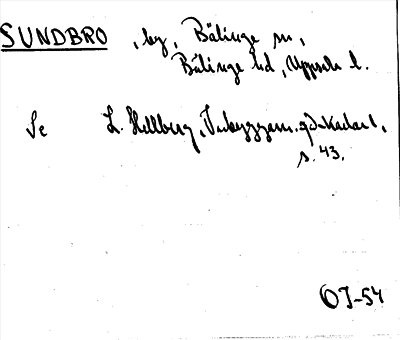 SUNDBRO, by, Bälinge sn,
Bälinge hd, Uppsala l.
Se L. Hellberg, Inbyggarn. o
s. 43.
OJ-54